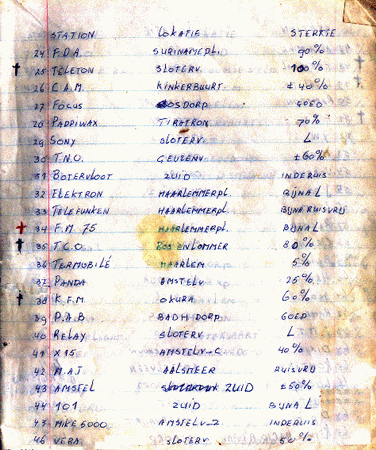 STATION LOKATIE STERKTE
24 F.D.A. SURINAMEPL. 90%
25 TELETON SLOTERV. 100%
26 C.A.M. KINKERBUURT ± 40%
27 FOCUS OSDORP GOED
28 PADDIWAX TIROTRON 70%
29 SONY SLOTERV. L
30 T.N.O. GEUZENV. ±60%
31 BOTERVLOOT ZUID INDERUIS
32 ELEKTRON HAARLEMMERPL. BIJNA L
33 TELEFUNKEN HAARLEMMERPL. BIJNA RUISVRIJ
34 F.M 75 HAARLEMMERPL. BIJNA L
35 T.C.O. BOS EN LOMMER 80%
36 TERMOBILÉ HAARLEM 5%
37 PANDA AMSTELV. 25%
38 K.F.M OKURA 60%
39 P.A.B BADH. DORP GOED
40 RELAY SLOTERV. L
41 X15 AMSTELV.-C 40%
42 M.A.J AALSMEER RUISVRIJ
43 AMSTEL ZUID ±50%
44 101 ZUID BIJNA L
45 MIKE 5000 AMSTELV-2 INDERUIS
46 VEBA SLOTERV. 50%